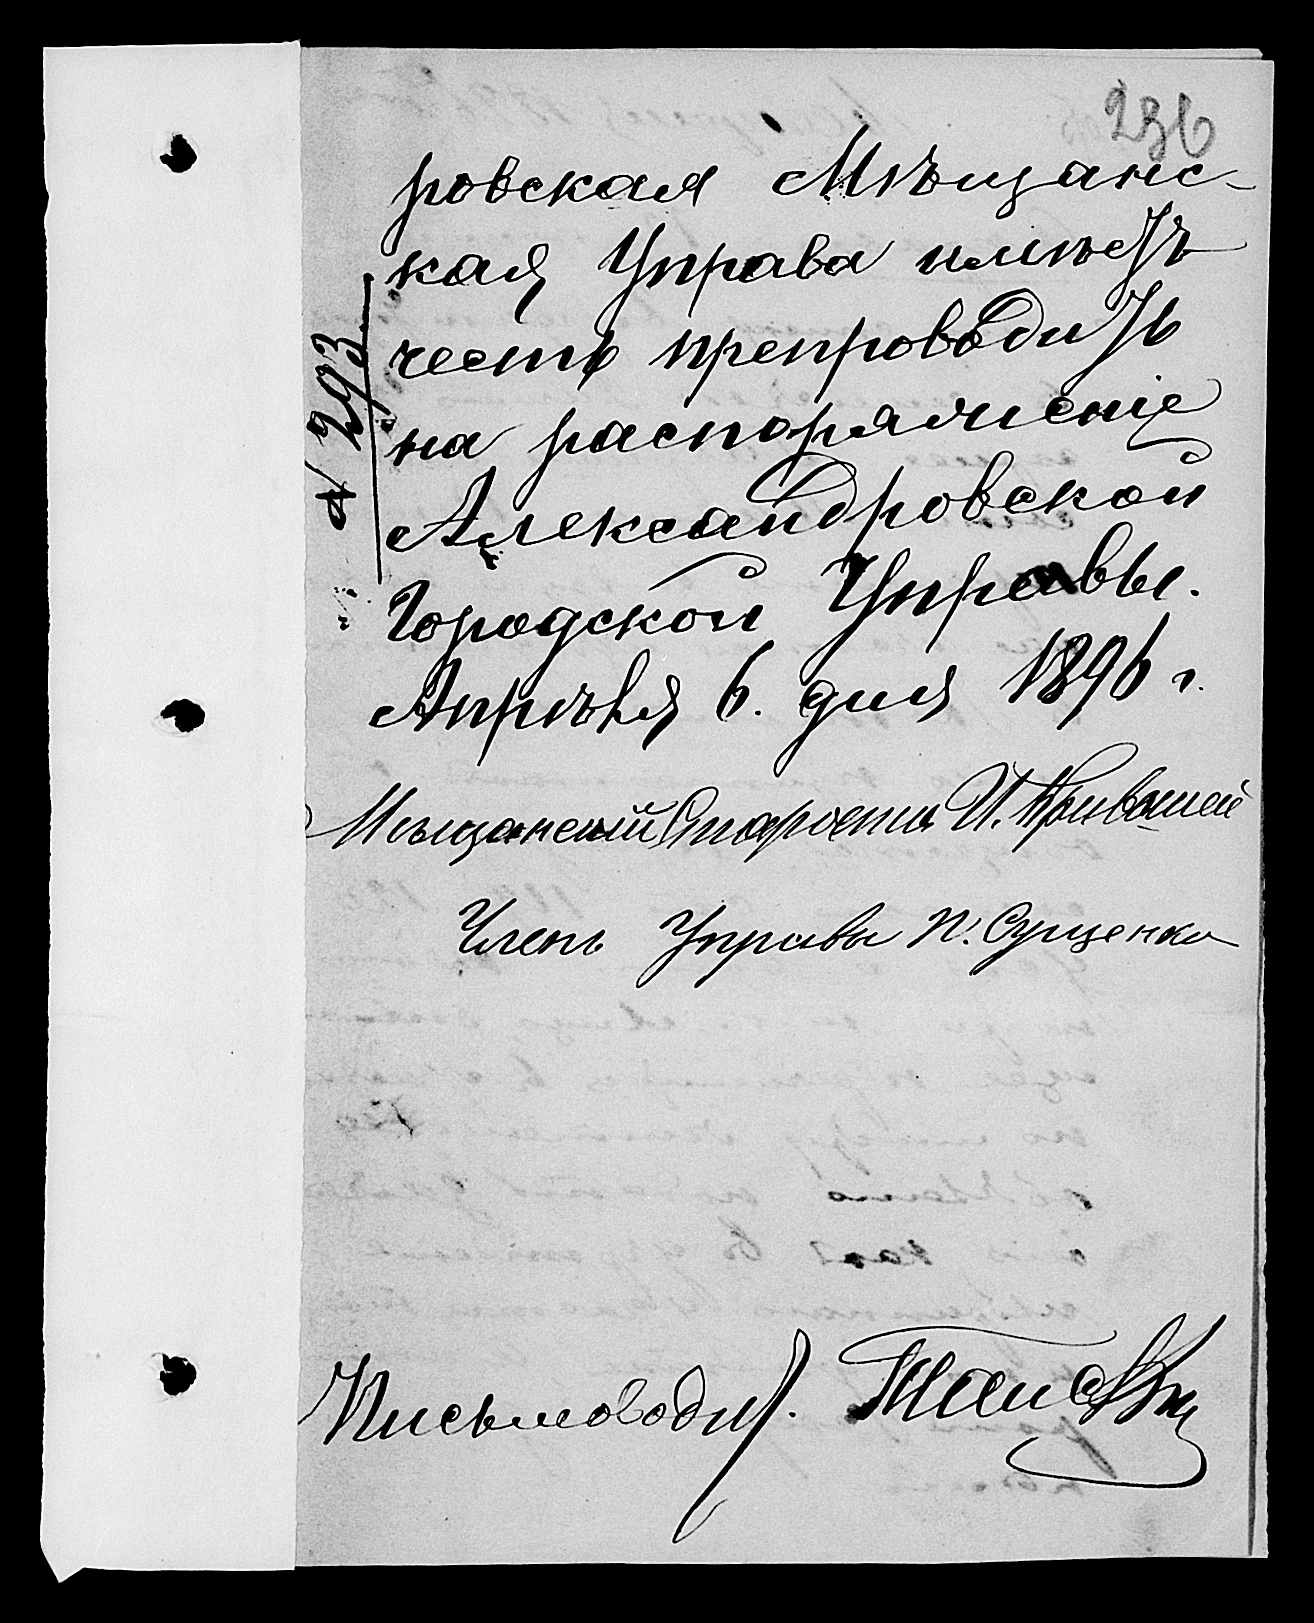 236
ровская Мѣщанс-
кая Управа имѣетъ
честь препроводить
на распоряженіе
Александровской
Городской Управы.
Апрѣля 6. дня 1896 г.
№ 293
Мѣщанский Староста И.
Членъ Управы П. Сущенко
Письмоводит.